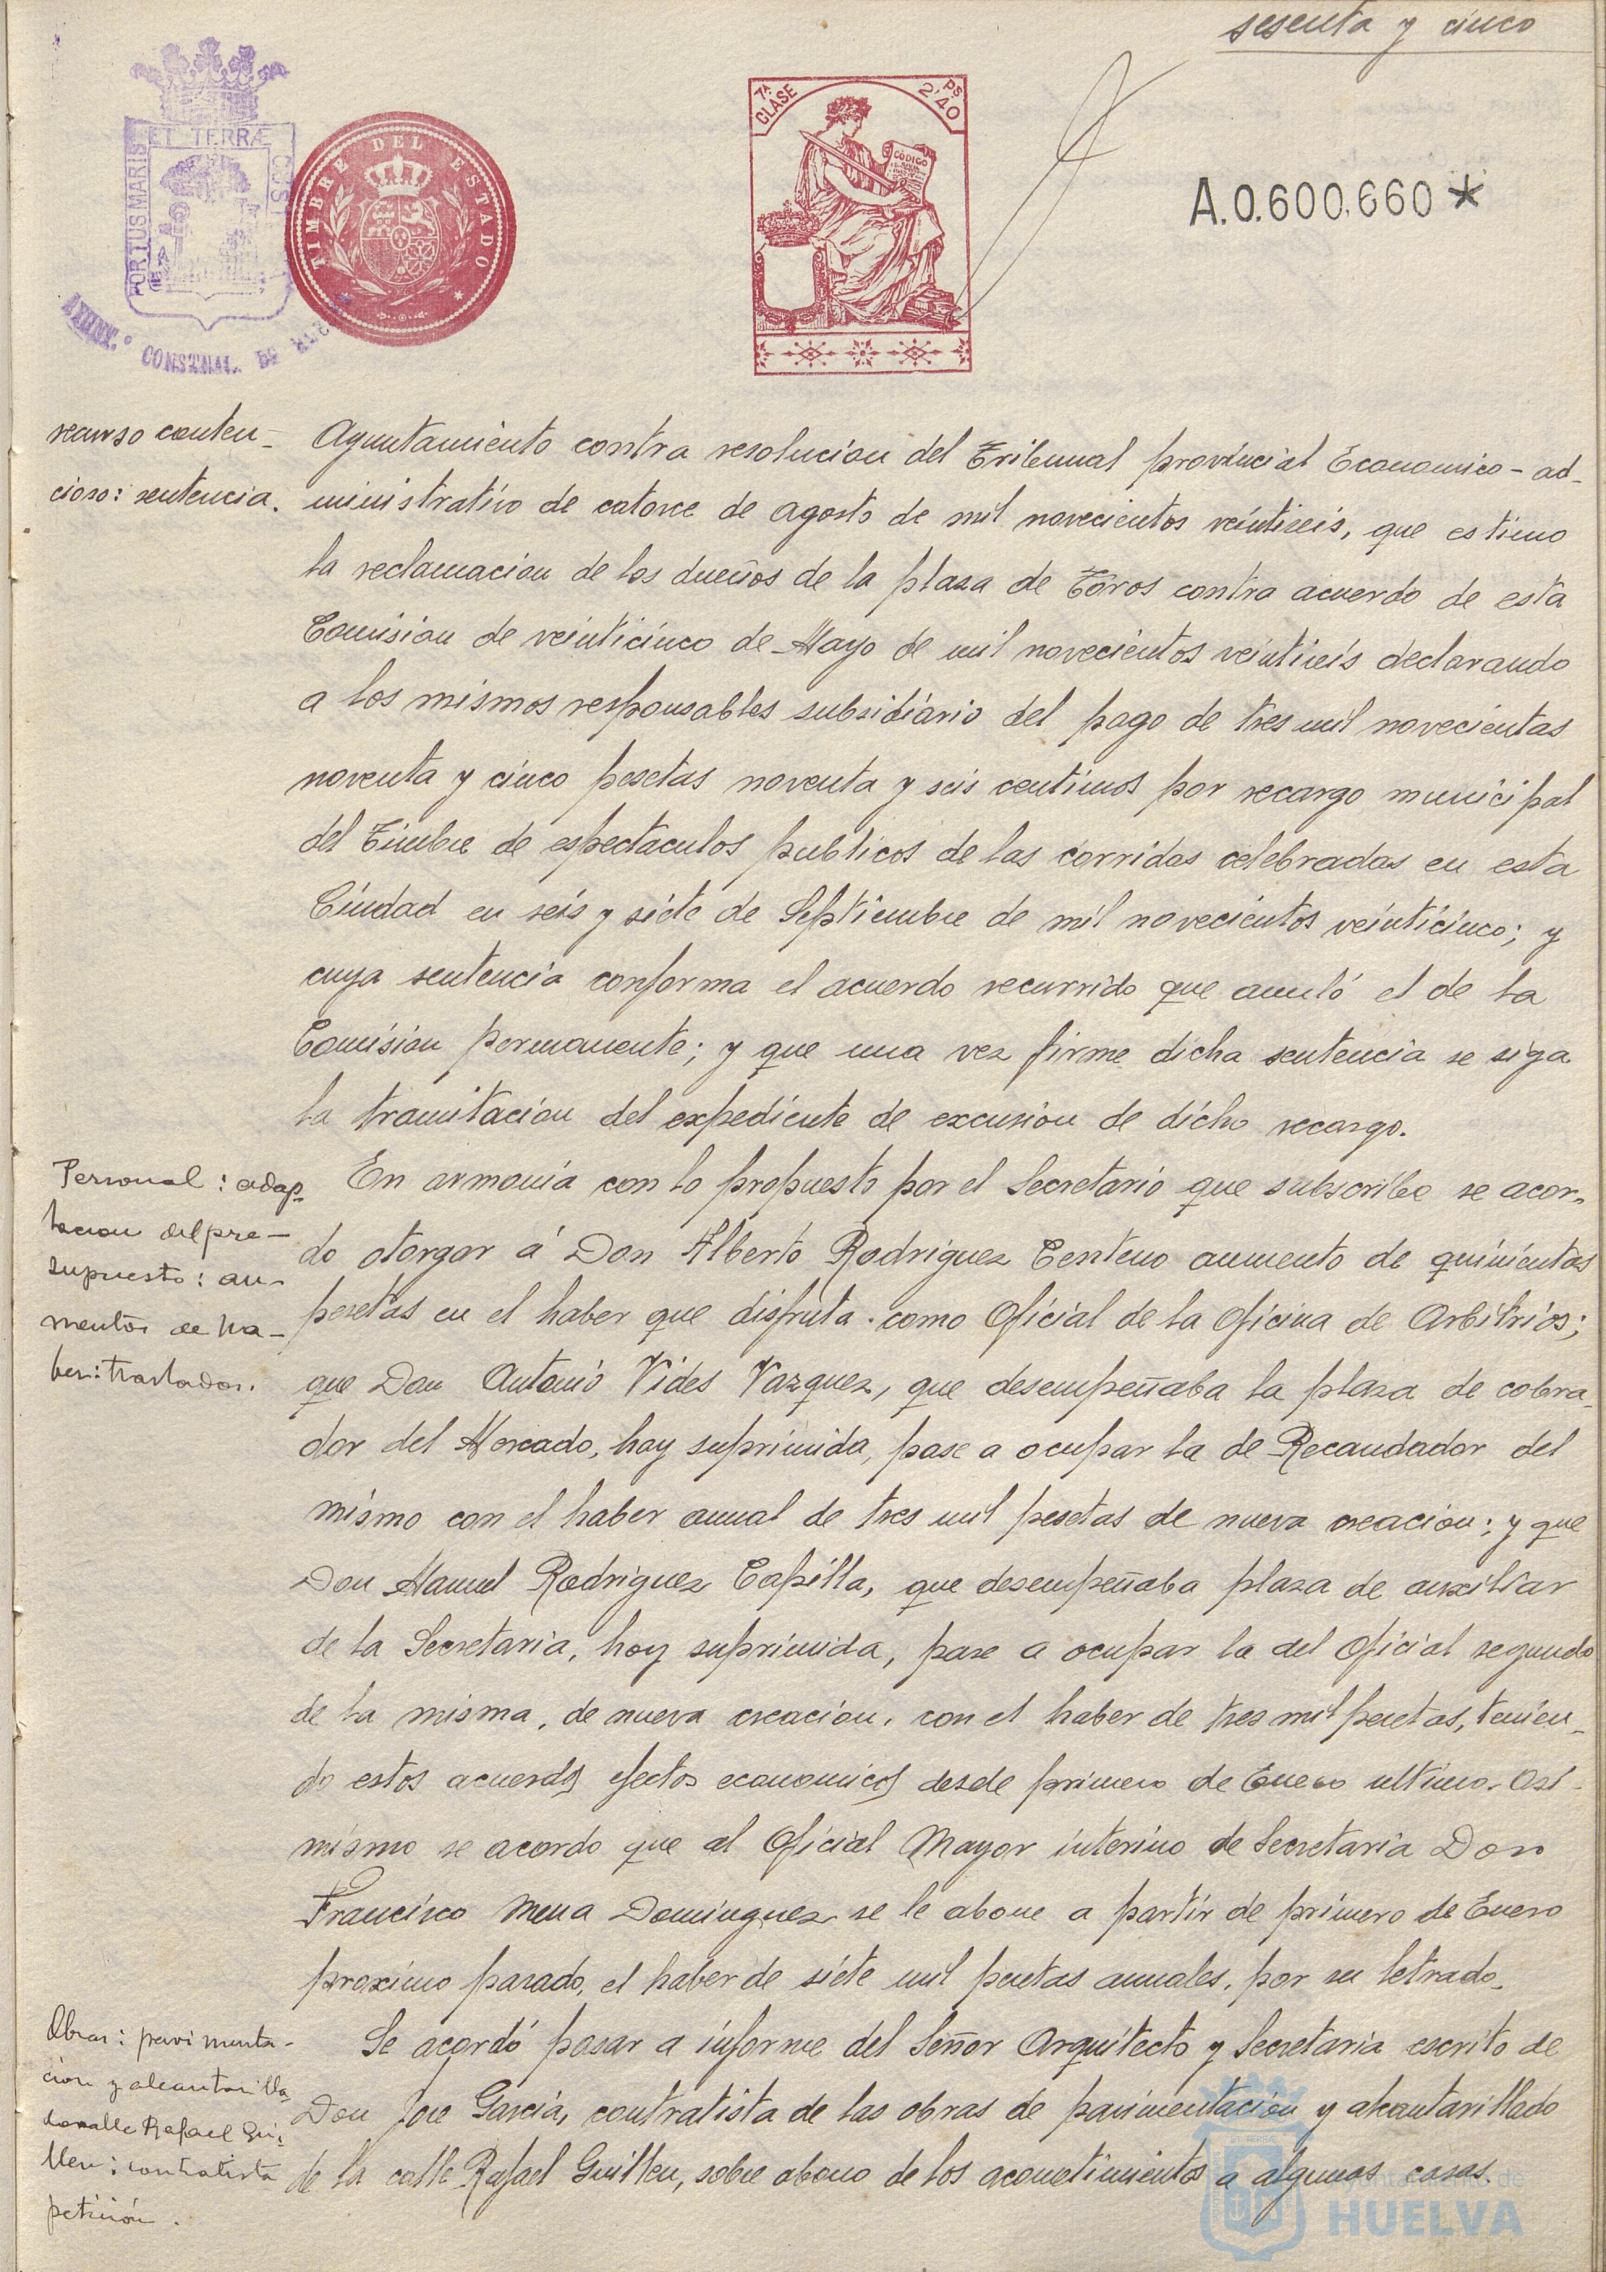 sesenta y cinco
7ª CLASE
2'40 PS
CÓDIGO
ET TERRÆ
PORTUS MARIS
CUST
TIMBRE DEL ESTADO
A.0.600.660*
recurso conten-
cioso: sentencia.
Ayuntamiento contra resolucion del Tribunal provincial Economico-ad-
ministrativo de catorce de agosto de mil novecientos veintiseis, que estimo
la reclamacion de los dueños de la plaza de Toros contra acuerdo de esta
Comision de veinticinco de Mayo de mil novecientos veintiseis declarando
a los mismos responsables subsidiario del pago de tres mil novecientas
noventa y cinco pesetas noventa y seis centimos por recargo municipal
del Timbre de espectaculos publicos de las corridas celebradas en esta
Ciudad en seis y siete de Septiembre de mil novecientos veinticinco; y
cuya sentencia conforma el acuerdo recurrido que anuló el de la
Comision permanente; y que una vez firme dicha sentencia se siga
la tramitacion del expediente de excusion de dicho recargo.
Personal: adap-
tacion del pre-
supuesto: au-
mentos de ha-
ber: traslados.
En armonia con lo propuesto por el Secretario que subscribe se acor-
do otorgar á Don Alberto Rodriguez Centeno aumento de quinientas
pesetas en el haber que disfruta como Oficial de la Oficina de Arbitrios;
que Don Antonio Vides Vazquez, que desempeñaba la plaza de cobra-
dor del Mercado, hoy suprimida, pase a ocupar la de Recaudador del
mismo con el haber anual de tres mil pesetas de nueva creacion; y que
Don Manuel Rodriguez Capilla, que desempeñaba plaza de auxiliar
de la Secretaria, hoy suprimida, pase a ocupar la del Oficial segundo
de la misma, de nueva creacion, con el haber de tres mil pesetas, tenien-
do estos acuerdos efectos economicos desde primero de Enero ultimo. Asi-
mismo se acordo que al Oficial Mayor interino de Secretaria Don
Francisco Mena Dominguez se le abone a partir de primero de Enero
proximo pasado, el haber de siete mil pesetas anuales, por ser letrado.
Obras: pavimenta-
cion y alcantarilla-
do calle Rafael Gui-
llen: contratista
petición.
Se acordó pasar a informe del Señor Arquitecto y Secretaria escrito de
Don Jose Garcia, contratista de las obras de pavimentacion y alcantarillado
de la calle Rafael Guillen, sobre abono de los acometimientos a algunas casas.
Ayuntamiento de
HUELVA